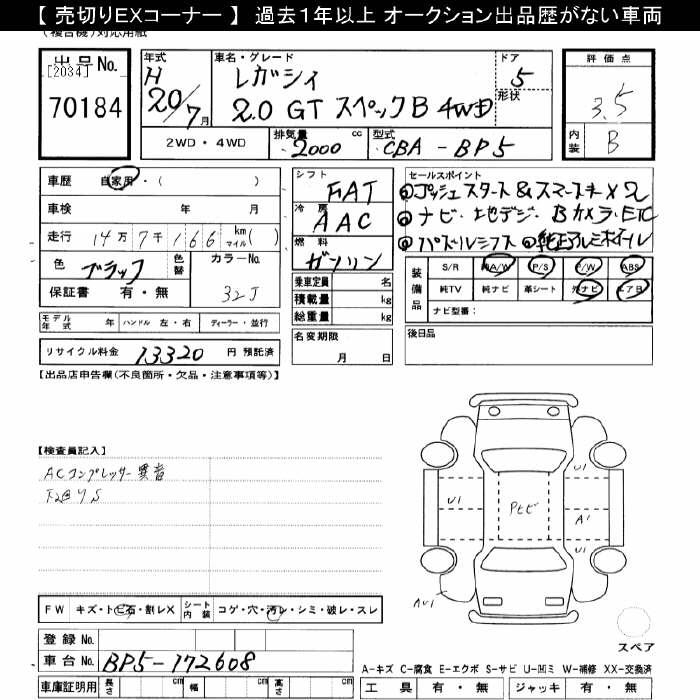 【 売切りEXコーナー 】 過去1年以上 オークション出品歴がない車両
(複合機)対応用紙
出品No.
[2034]
70184
年式
H
20/7月
車名・グレード
レガシィ
2.0 GT スペックB 4WD
ドア
5
形状
評価点
3.5
内装
B
2WD・4WD
排気量
2000 cc
型式
CBA-BP5
車歴 自家用・( )
車検 年 月
走行 14万7千166 km マイル( )
色 ブラック
色替
カラーNo.
32J
保証書 有・無
シフト
FAT
冷房
AAC
燃料
ガソリン
乗車定員 名
積載量 kg
総重量 kg
セールスポイント
プッシュスタート&スマートキーX2
ナビ・地デジ・Bカメラ・ETC
パドルシフト 純正アルミホイール
装備品
S/R 純A/W P/S P/W ABS
純TV 純ナビ 革シート 外ナビ エアB
ナビ型番:
モデル年式 年 ハンドル 左・右 ディーラー・並行
リサイクル料金 13320 円 預託済
名変期限
月 日
後日品
【出品店申告欄(不良箇所・欠品・注意事項等)】
【検査員記入】
ACコンプレッサー異音
下回りS
U1
U1
Pヒビ
A1
U1
AU1
FW キズ・トビ石・割レX
シート内装 コゲ・穴・汚レ・シミ・破レ・スレ
登録No.
車台No. BP5-172608
車庫証明用 長さ cm 幅 cm 高さ cm
スペア
A-キズ C-腐食 E-エクボ S-サビ U-凹ミ W-補修 XX-交換済
工具 有・無 ジャッキ 有・無